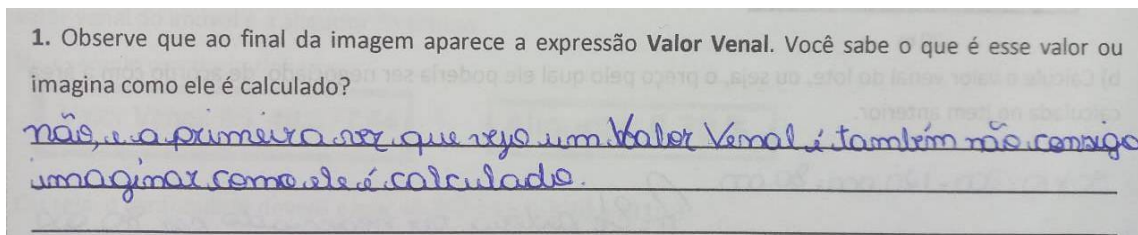 1. Observe que ao final da imagem aparece a expressão Valor Venal. Você sabe o que é esse valor ou
imagina como ele é calculado?
não, e a primeira vez que vejo um Valor Venal é também não consigo
imaginar como ele é calculado.